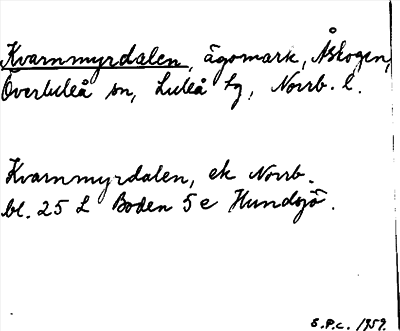 Kvarnmyrdalen, ägomark, Åskogen,
Överluleå sn, Luleå tg, Norrb. l.
Kvarnmyrdalen, ek Norrb.
bl. 25 L Boden 5 e Hundsjö.
S.P.c. 1959.